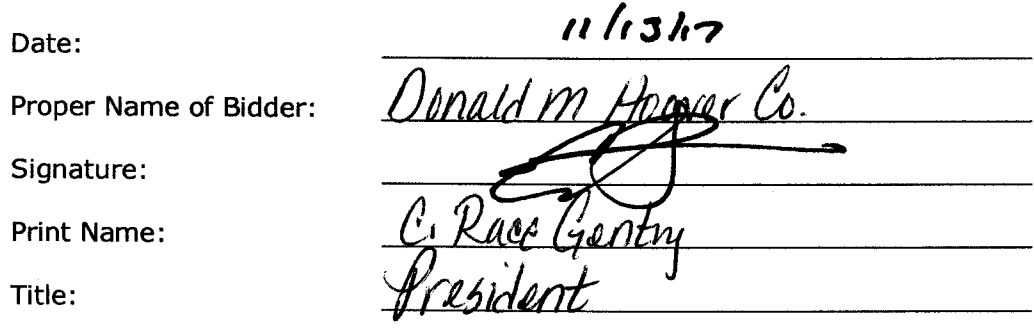 Date: 11/13/17
Proper Name of Bidder: Donald M Hoover Co.
Signature:
Print Name: C. Race Gentry
Title: President